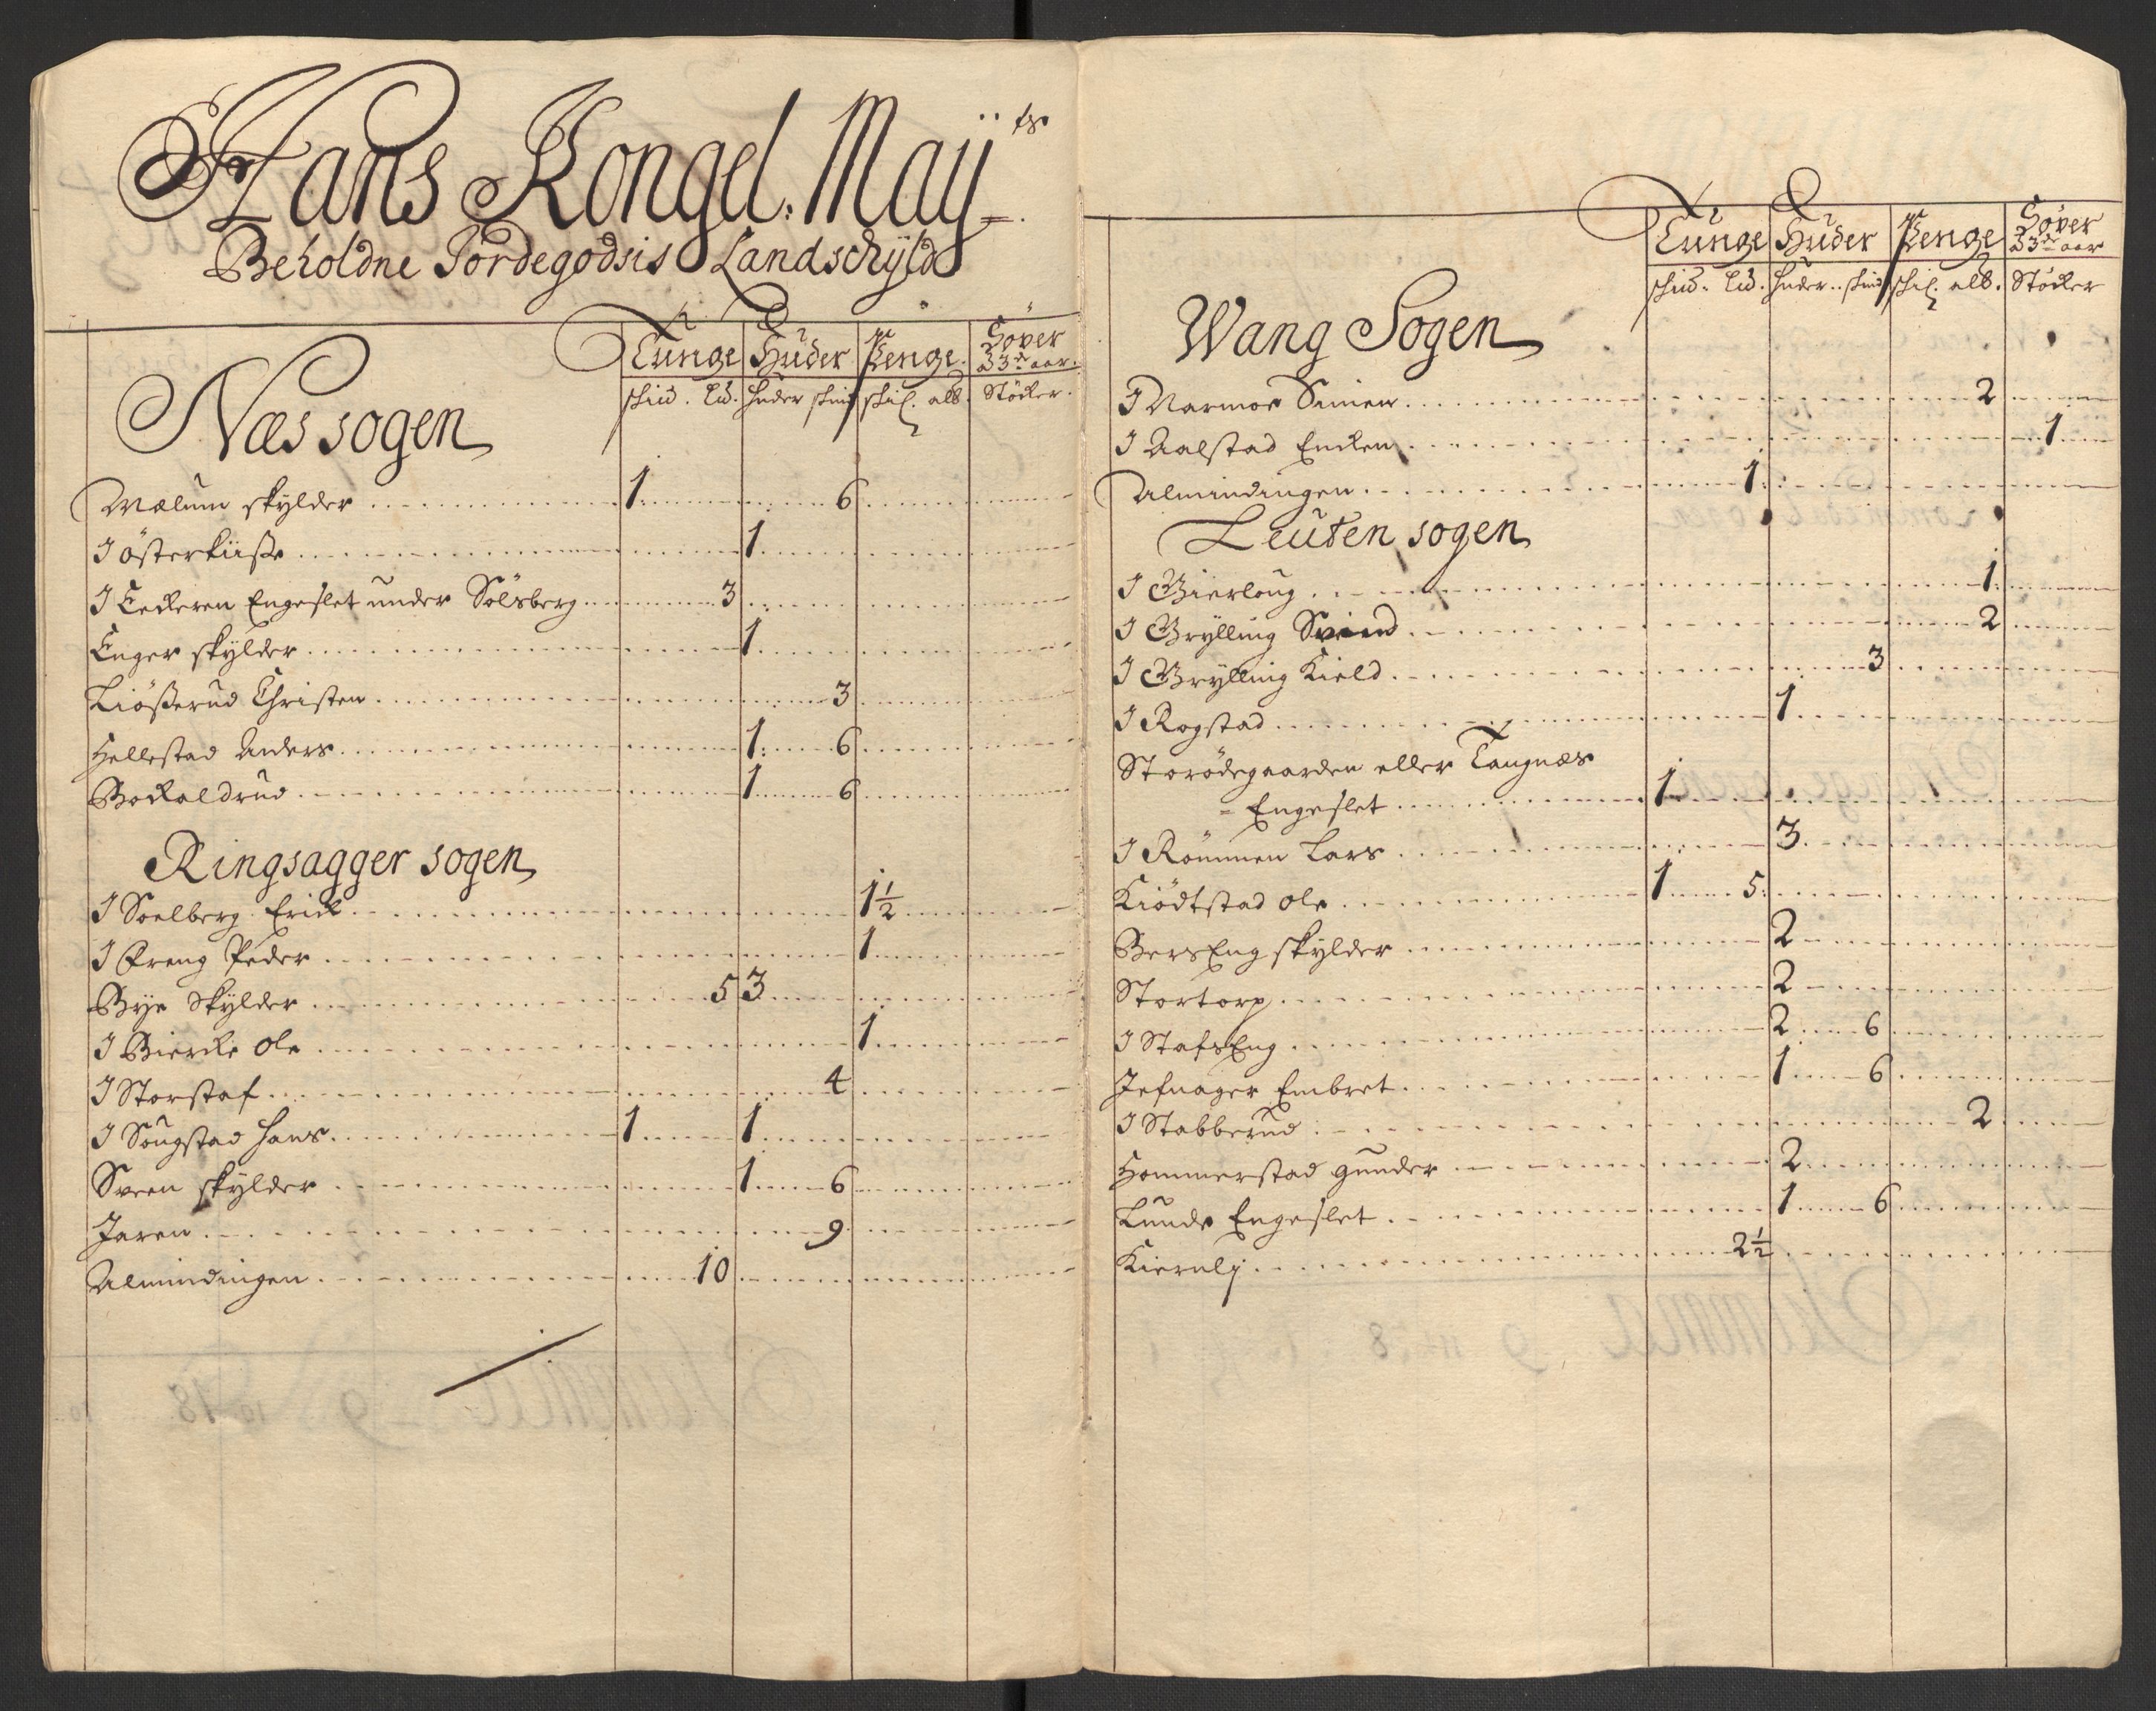 Hans Kongel. Maÿ ts
Beholdne Jordegodsis Landschÿld
Tunge Huder Penge Söver
3 3de aar.
skid. Lid. Huder skind skil. alb. Stöcker.
Næs sogen
Mælum skylder 1 6
I Österkiiße 1
I Leckeren Engeslet under Sölsberg 3
Enger skylder 1
Liößerud Christen 3
Hellestad Anders 1 6
Bockaldrud 1 6
Ringsagger sogen
I Soelberg Erick 1 1/2
I Freng Peder 1
Bye Skylder 5 3
I Biercke Ole 1
I Storstaf 4
I Sougstad Hans 1 1
Sveen skylder 1 6
Jaren 9
Almindingen 10
Tunge Huder Penge Söver
3 3de aar
skid. Lid. Huder skind skil. alb. Stöcker
Wang Sogen
I Narmoe Simen 2
I Aalstad Encken 1
Almindingen 1
Leuten sogen
I Gierloug 1
I Grylling Svend 2
I Grylling Kield 3
I Rogstad 1
Storödegaarden eller Tangnæs
Engeslet 1
I Römmen Lars 3
Kiödtstad Ole 1 5
BersEng skylder 2
Stortorp 2
I StafsEng 2 6
Jefnager Embret 1 6
I Stabberud 2
Hommerstad Gunder 2
Lunde Engeslet 1 6
Kiernly 2 1/2